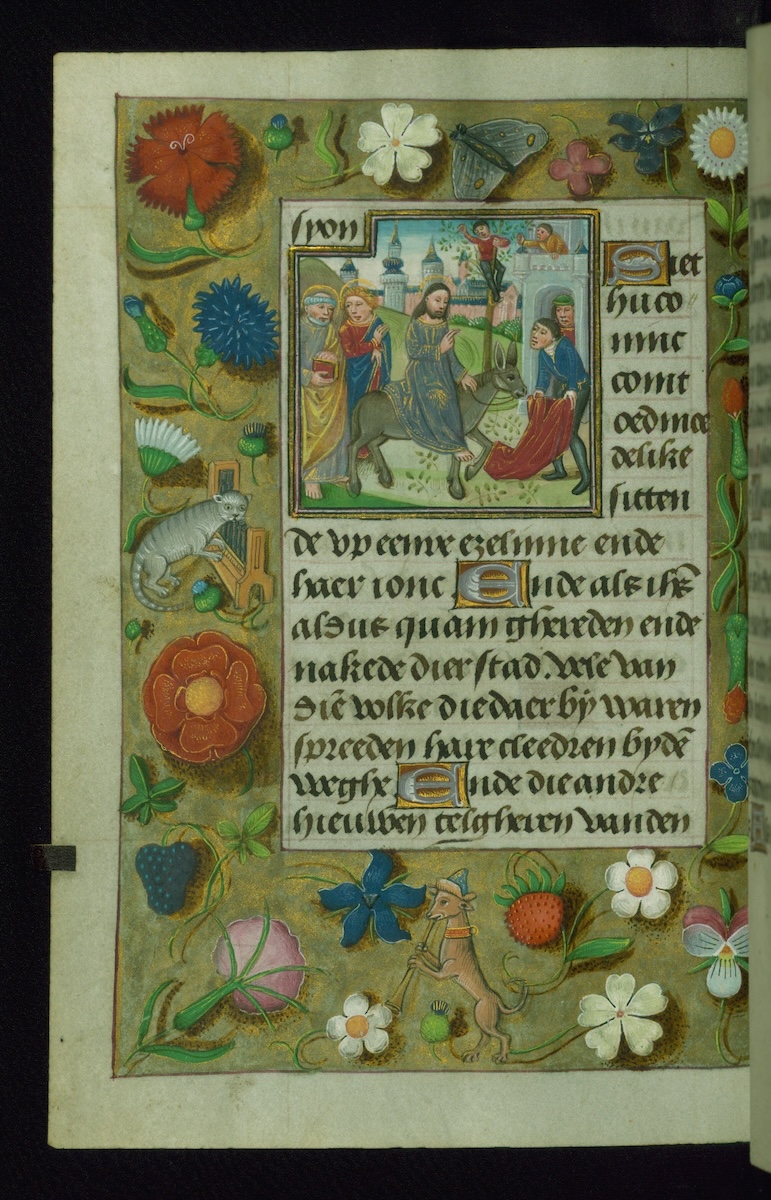 syon
Siet
hu co
ninc
comt
oedmoe
delike
sitten
de up eenre ezelinne ende
haer ionc Ende als ihs̄
aldus quam ghereden ende
nakede dier stad. vele van
diē volke die daer bÿ waren
spreeden hare cleedren bydē
weghe Ende die andre
hieuwen telgheren vanden